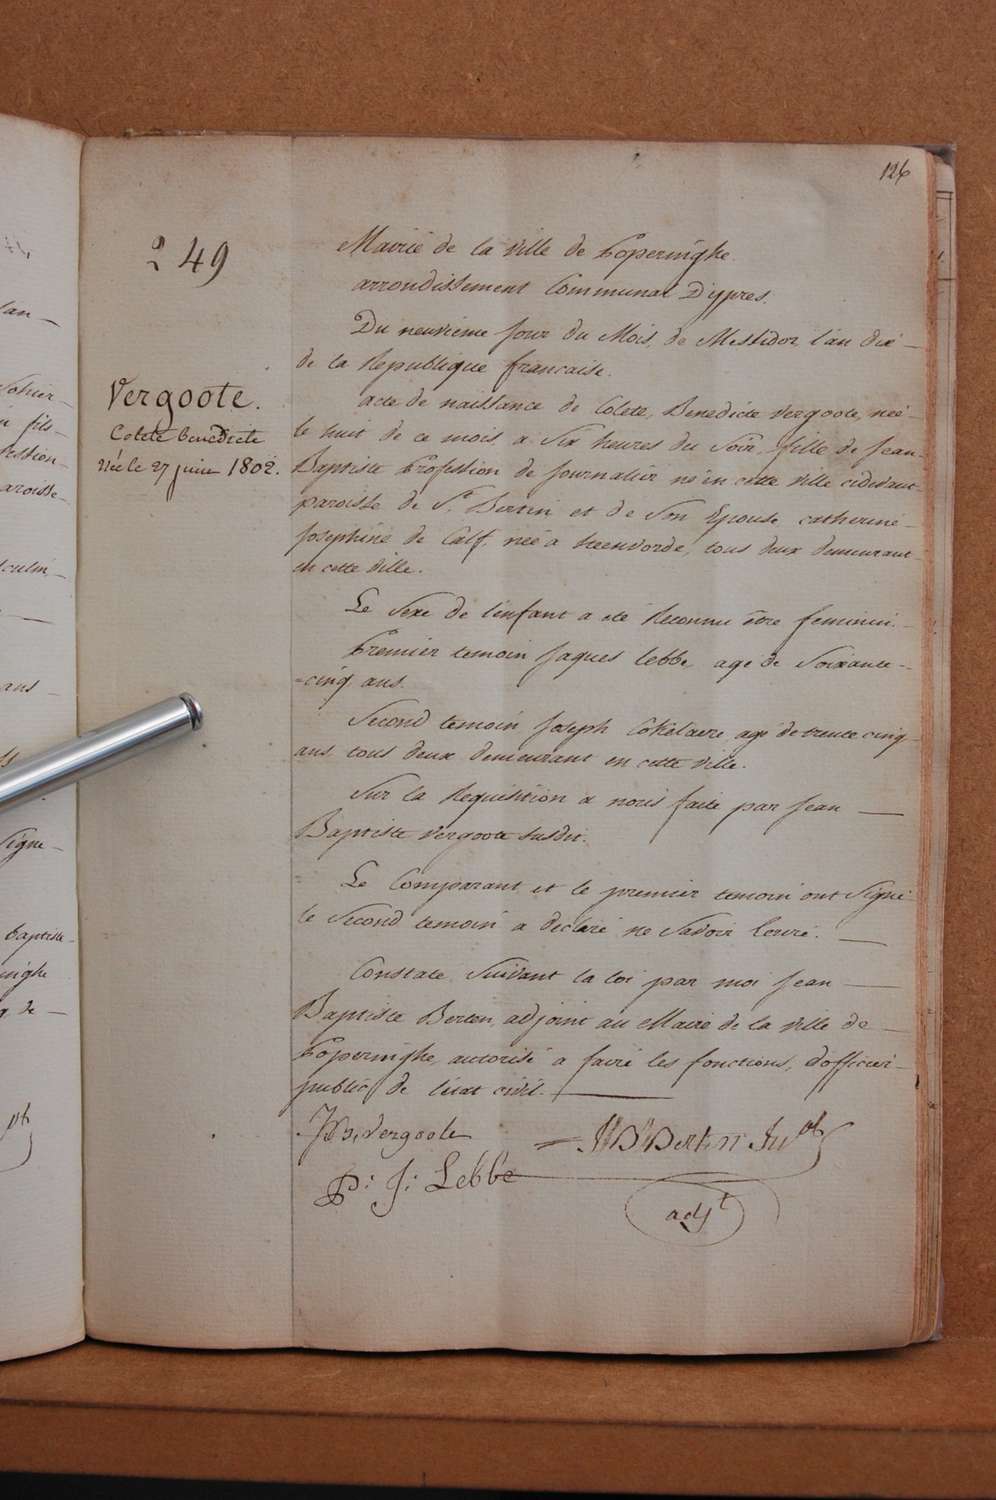 126
249
Vergoote.
Colete benedicte
Née le 27 juin 1802.
Mairie de la ville de Poperinghe.
arrondissement Communal D'ypres.
Du neuvieme jour du Mois, de Messidor l'an dix
de la Republique francaise.
acte de naissance de Colete, Benedicte Vergoote, neé
le huit de ce mois a Six heures du Soir, fille de Jean
Baptiste Profession de Journalier né in cette ville cidevant
paroisse de St. Bertin et de Son Epouse catherine
Josephine de Calf, neé a Steenvorde, tous deux demeurant
en cette ville.
Le Sexe de l'enfant a eté Reconnu être feminin.
Premier temoin Jaques Lebbe agé de Soixante
=cinq ans.
Second temoin Joseph Cokelaere agé de trente cinq
ans tous deux demeurant en cette ville.
Sur la Requisition a nous faite par Jean
Baptiste Vergoote susdit.
Le Comparant et le premier temoin ont Signé
le Second temoin a declaré ne Savoir Ecrire.
Constate Suivant la loi par moi Jean
Baptiste Berten, adjoint au Maire de la ville de
Poperinghe, autorisé a faire les fonctions, d'officier
public de l'etat civil.
JB, Vergoote
JB Berten
P: J: Lebbe
adjt
lan
fils
aroisse
sculin
ans
signe
baptiste
inghe